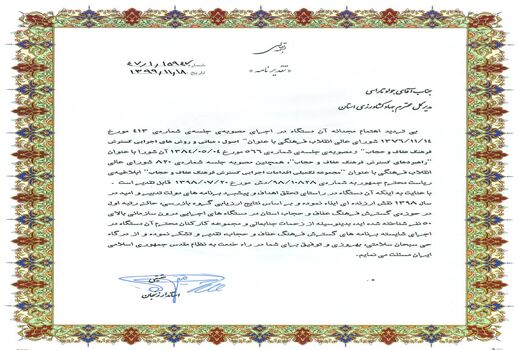 بسمه تعالی
شماره ۴۷/۱/۱۵۹۴۲
تاریخ ۱۳۹۹/۱۱/۱۸
«تقدیرنامه»
جناب آقای جواد تارامی
مدیرکل محترم جهاد کشاورزی استان
بی تردید اهتمام مجدانه آن دستگاه در اجرای مصوبه‌ی جلسه‌ی شماره‌ی ۴۱۳ مورخ
۱۳۷۶/۱۱/۱۴ شورای عالی انقلاب فرهنگی با عنوان "اصول، مبانی و روش های اجرایی گسترش
فرهنگ عفاف و حجاب" و مصوبه‌ی جلسه‌ی شماره‌ی ۵۶۶ مورخ ۱۳۸۴/۰۵/۰۴ آن شورا با عنوان
"راهبردهای گسترش فرهنگ عفاف و حجاب"، همچنین مصوبه جلسه شماره‌ی ۸۲۰ شورای عالی
انقلاب فرهنگی با عنوان "مجموعه تکمیلی اقدامات اجرایی گسترش فرهنگ عفاف و حجاب" ابلاغیه‌ی
ریاست محترم جمهور به شماره‌ی ۹۸/۱۰۸۲۸/دش مورخ ۱۳۹۸/۰۷/۲۰ قابل تقدیر است.
با عنایت به اینکه آن دستگاه در راستای تحقق اهداف و پیشبرد برنامه های دولت تدبیر و امید در
سال ۱۳۹۸ نقش ارزنده ای ایفاء نموده و بر اساس نتایج ارزیابی گروه بازرسی، حائز رتبه اول
در حوزه‌ی گسترش فرهنگ عفاف و حجاب استان در دستگاه های اجرایی درون سازمانی بالای
۵۰ نفر شناخته شده اید، بدینوسیله از زحمات جنابعالی و مجموعه کارکنان محترم آن دستگاه در
اجرای شایسته برنامه های گسترش فرهنگ عفاف و حجاب، تقدیر و تشکر نموده و از درگاه
حی سبحان سلامتی، بهروزی و توفیق برای شما در راه خدمت به نظام مقدس جمهوری اسلامی
ایران مسئلت می نمایم.
حقیقی
استاندار زنجان